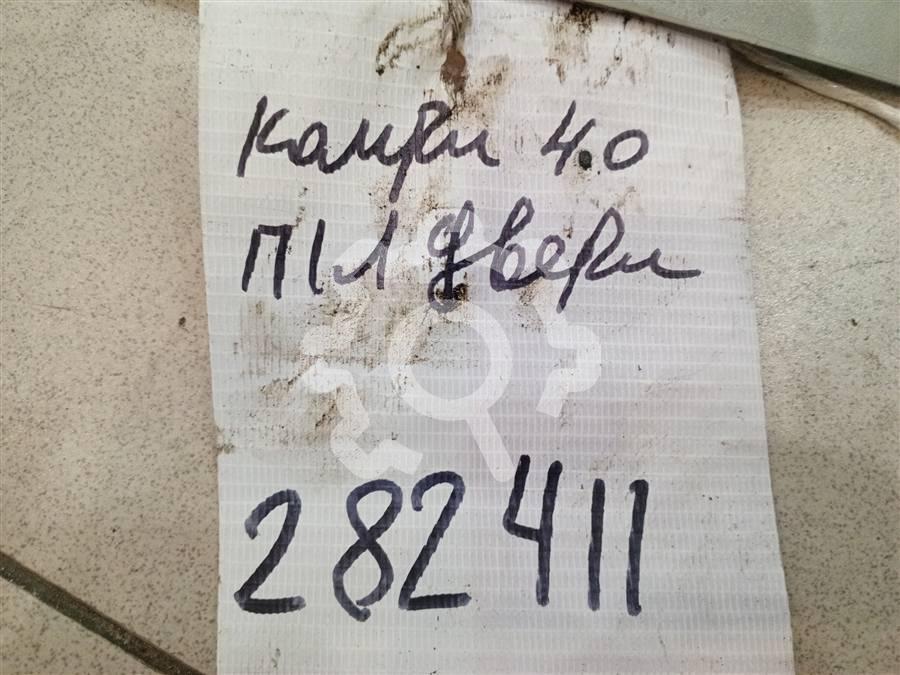 Камри 4.0
П/Л двери
282411